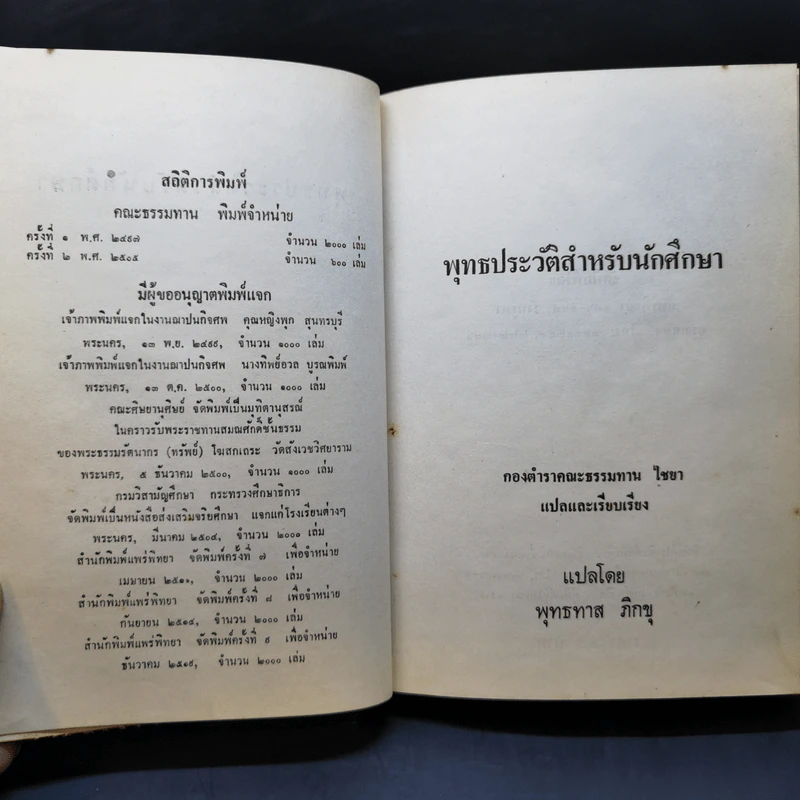 สถิติการพิมพ์
คณะธรรมทาน พิมพ์จำหน่าย
ครั้งที่ ๑ พ.ศ. ๒๔๙๗ จำนวน ๒๐๐๐ เล่ม
ครั้งที่ ๒ พ.ศ. ๒๕๐๕ จำนวน ๖๐๐ เล่ม
มีผู้ขออนุญาตพิมพ์แจก
เจ้าภาพพิมพ์แจกในงานฌาปนกิจศพ คุณหญิงพุก สุนทรบุรี
พระนคร, ๑๓ พ.ย. ๒๔๙๙, จำนวน ๑๐๐๐ เล่ม
เจ้าภาพพิมพ์แจกในงานฌาปนกิจศพ นางทิพย์อวล บูรณพิมพ์
พระนคร, ๑๓ ต.ค. ๒๕๐๐, จำนวน ๑๐๐๐ เล่ม
คณะศิษยานุศิษย์ จัดพิมพ์เป็นมุทิตานุสรณ์
ในคราวรับพระราชทานสมณศักดิ์ชั้นธรรม
ของพระธรรมรัตนากร (ทรัพย์) โฆสกเถระ วัดสังเวชวิศยาราม
พระนคร, ๕ ธันวาคม ๒๕๐๐, จำนวน ๑๐๐๐ เล่ม
กรมวิสามัญศึกษา กระทรวงศึกษาธิการ
จัดพิมพ์เป็นหนังสือส่งเสริมจริยศึกษา แจกแก่โรงเรียนต่างๆ
พระนคร, มีนาคม ๒๕๐๔, จำนวน ๒๐๐๐ เล่ม
สำนักพิมพ์แพร่พิทยา จัดพิมพ์ครั้งที่ ๗ เพื่อจำหน่าย
เมษายน จำนวน ๒๐๐๐ เล่ม
สำนักพิมพ์แพร่พิทยา จัดพิมพ์ครั้งที่ ๘ เพื่อจำหน่าย
กันยายน ๒๕๑๔, จำนวน ๒๐๐๐ เล่ม
สำนักพิมพ์แพร่พิทยา จัดพิมพ์ครั้งที่ ๙ เพื่อจำหน่าย
ธันวาคม ๒๕๑๙, จำนวน ๒๐๐๐ เล่ม
พุทธประวัติสำหรับนักศึกษา
กองตำราคณะธรรมทาน ไชยา
แปลและเรียบเรียง
แปลโดย
พุทธทาส ภิกขุ